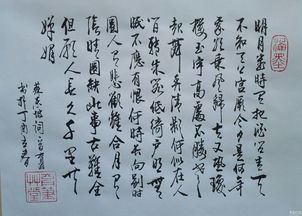 明月幾時有把酒問青天
不知天上宮闕今夕是何年
我欲乘風歸去又恐瓊
樓玉宇高處不勝寒
起舞弄清影何似在人
間轉朱閣低綺戶照無
眠不應有恨何事長向別時
圓人有悲歡離合月有
陰晴圓缺此事古難全
但願人長久千里共
嬋娟